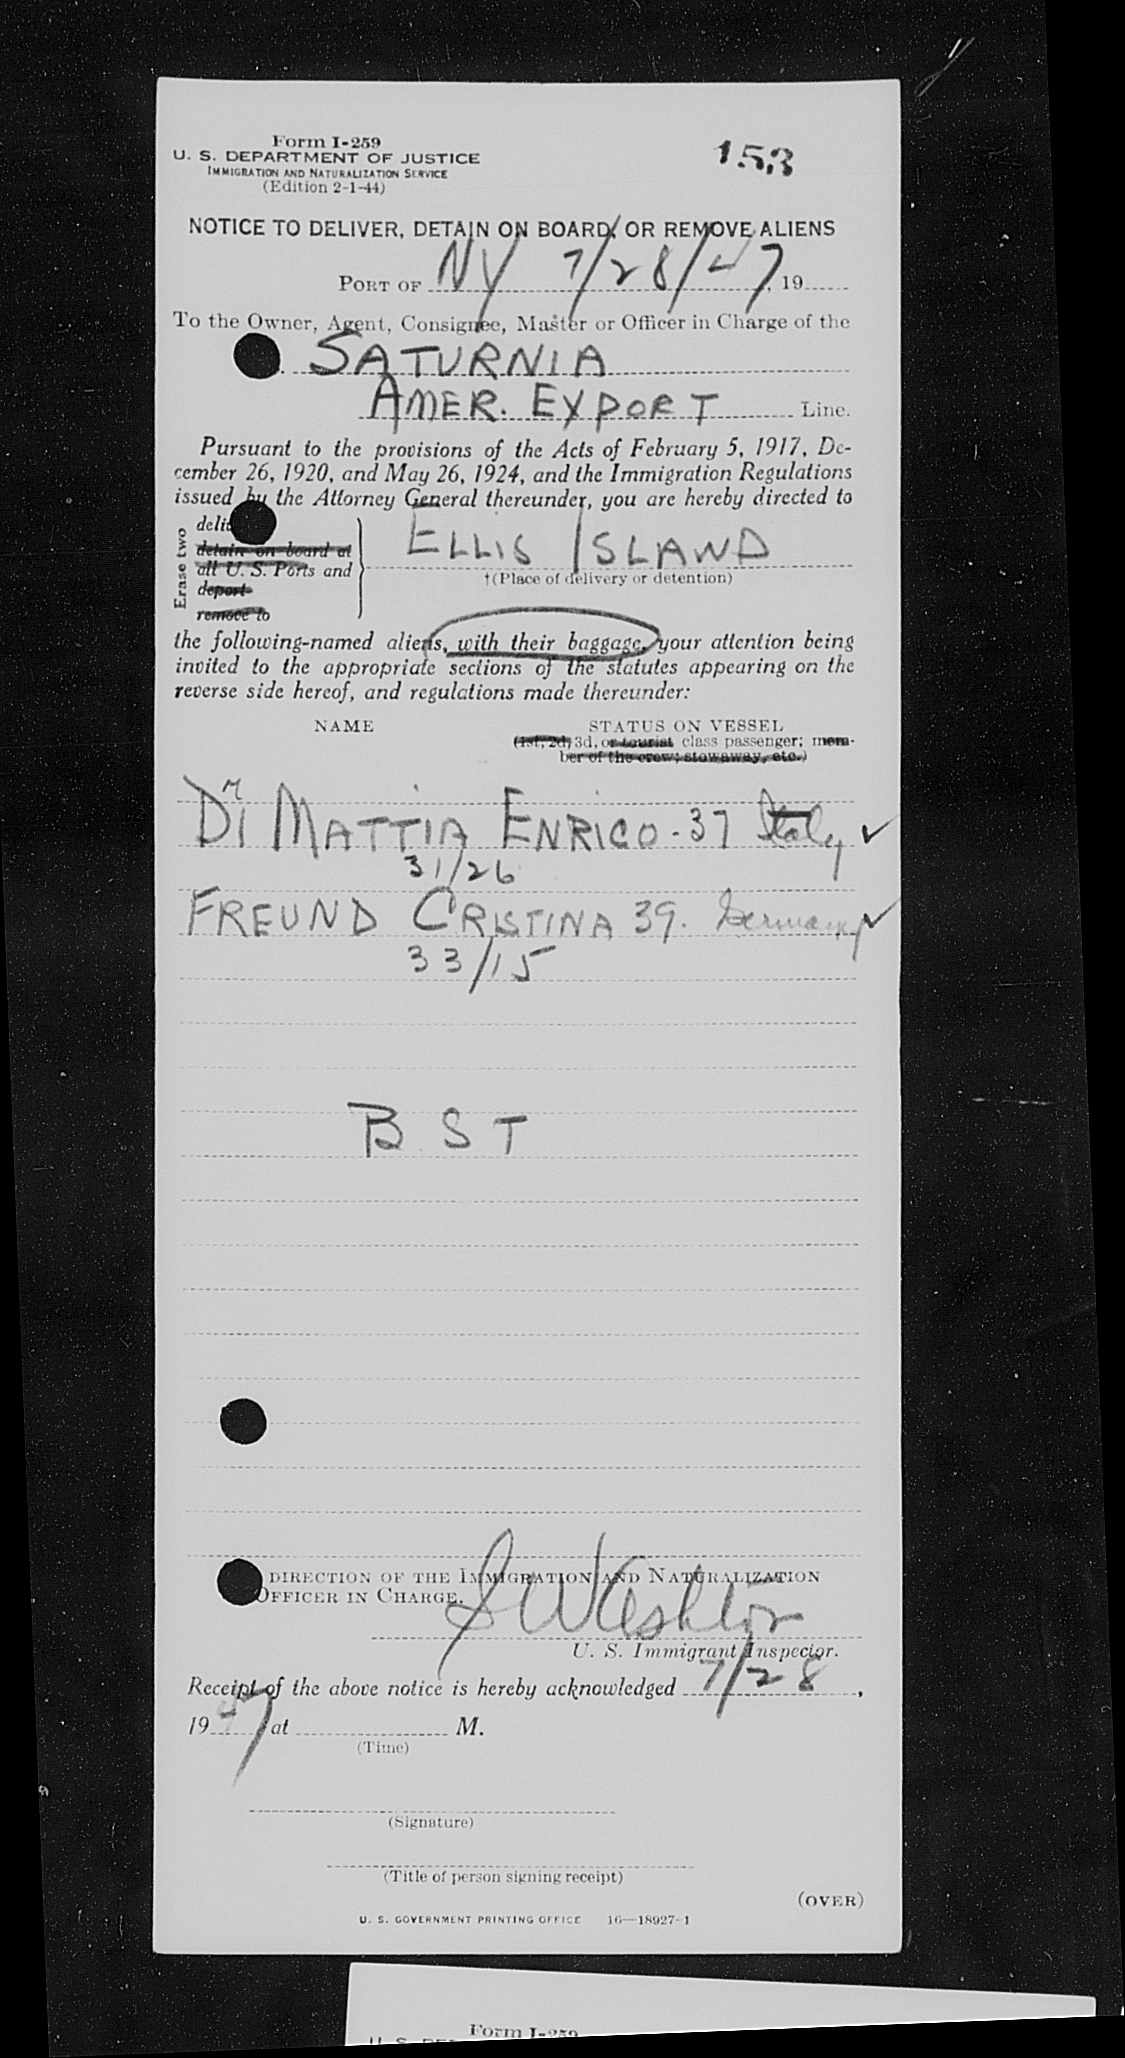 Form I-259
U. S. DEPARTMENT OF JUSTICE
IMMIGRATION AND NATURALIZATION SERVICE
(Edition 2-1-44)
153
NOTICE TO DELIVER, DETAIN ON BOARD, OR REMOVE ALIENS
PORT OF NY 7/28/47, 19
To the Owner, Agent, Consignee, Master or Officer in Charge of the
SATURNIA
AMER. EXPORT Line.
Pursuant to the provisions of the Acts of February 5, 1917, De-
cember 26, 1920, and May 26, 1924, and the Immigration Regulations
issued by the Attorney General thereunder, you are hereby directed to
Erase two
detain on board at
all U. S. Ports and
deport
remove to
ELLIS ISLAND
†(Place of delivery or detention)
the following-named aliens, with their baggage, your attention being
invited to the appropriate sections of the statutes appearing on the
reverse side hereof, and regulations made thereunder:
NAME
STATUS ON VESSEL
(1st, 2d, 3d, or tourist class passenger; mem-
ber of the crew; stowaway, etc.)
Di MATTIA ENRICO - 37 Italy ✓
31/26
FREUND CRISTINA 39. Germany ✓
33/15
B S T
DIRECTION OF THE IMMIGRATION AND NATURALIZATION
OFFICER IN CHARGE.
U. S. Immigrant Inspector.
Receipt of the above notice is hereby acknowledged 7/28,
1947 at M.
(Time)
(Signature)
(Title of person signing receipt)
(OVER)
U. S. GOVERNMENT PRINTING OFFICE 16—18927-1
Form I-259